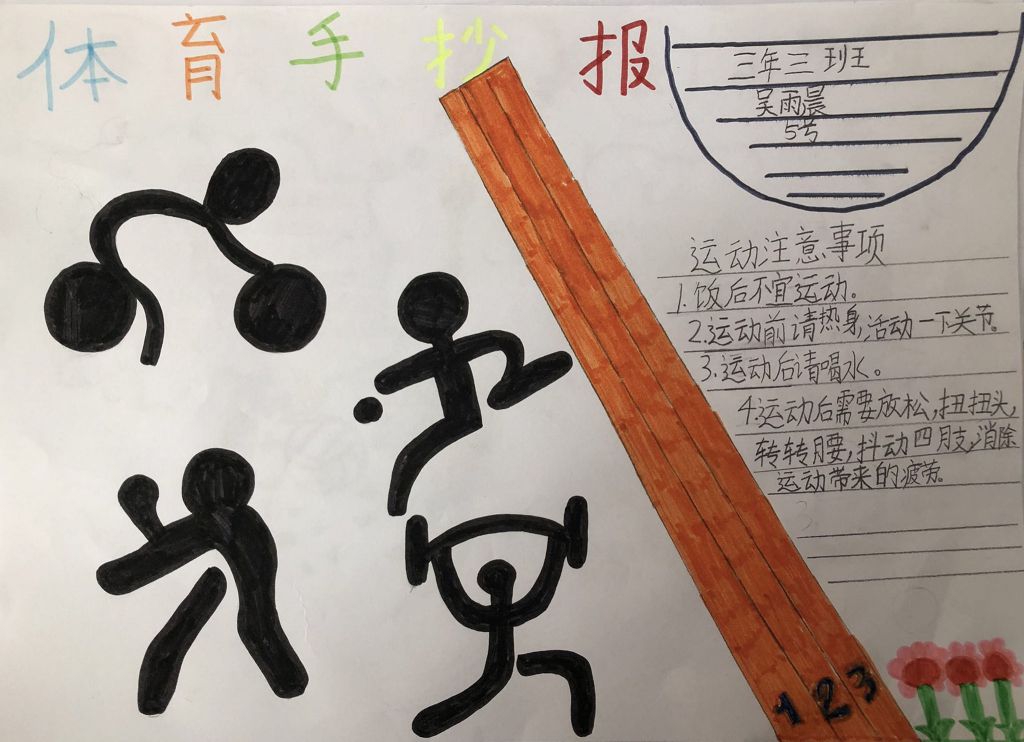 体育手抄报
三年三班
吴雨晨
5号
运动注意事项
1.饭后不宜运动。
2.运动前请热身,活动一下关节。
3.运动后请喝水。
4.运动后需要放松,扭扭头,
转转腰,抖动四肢,消除
运动带来的疲劳。
1 2 3